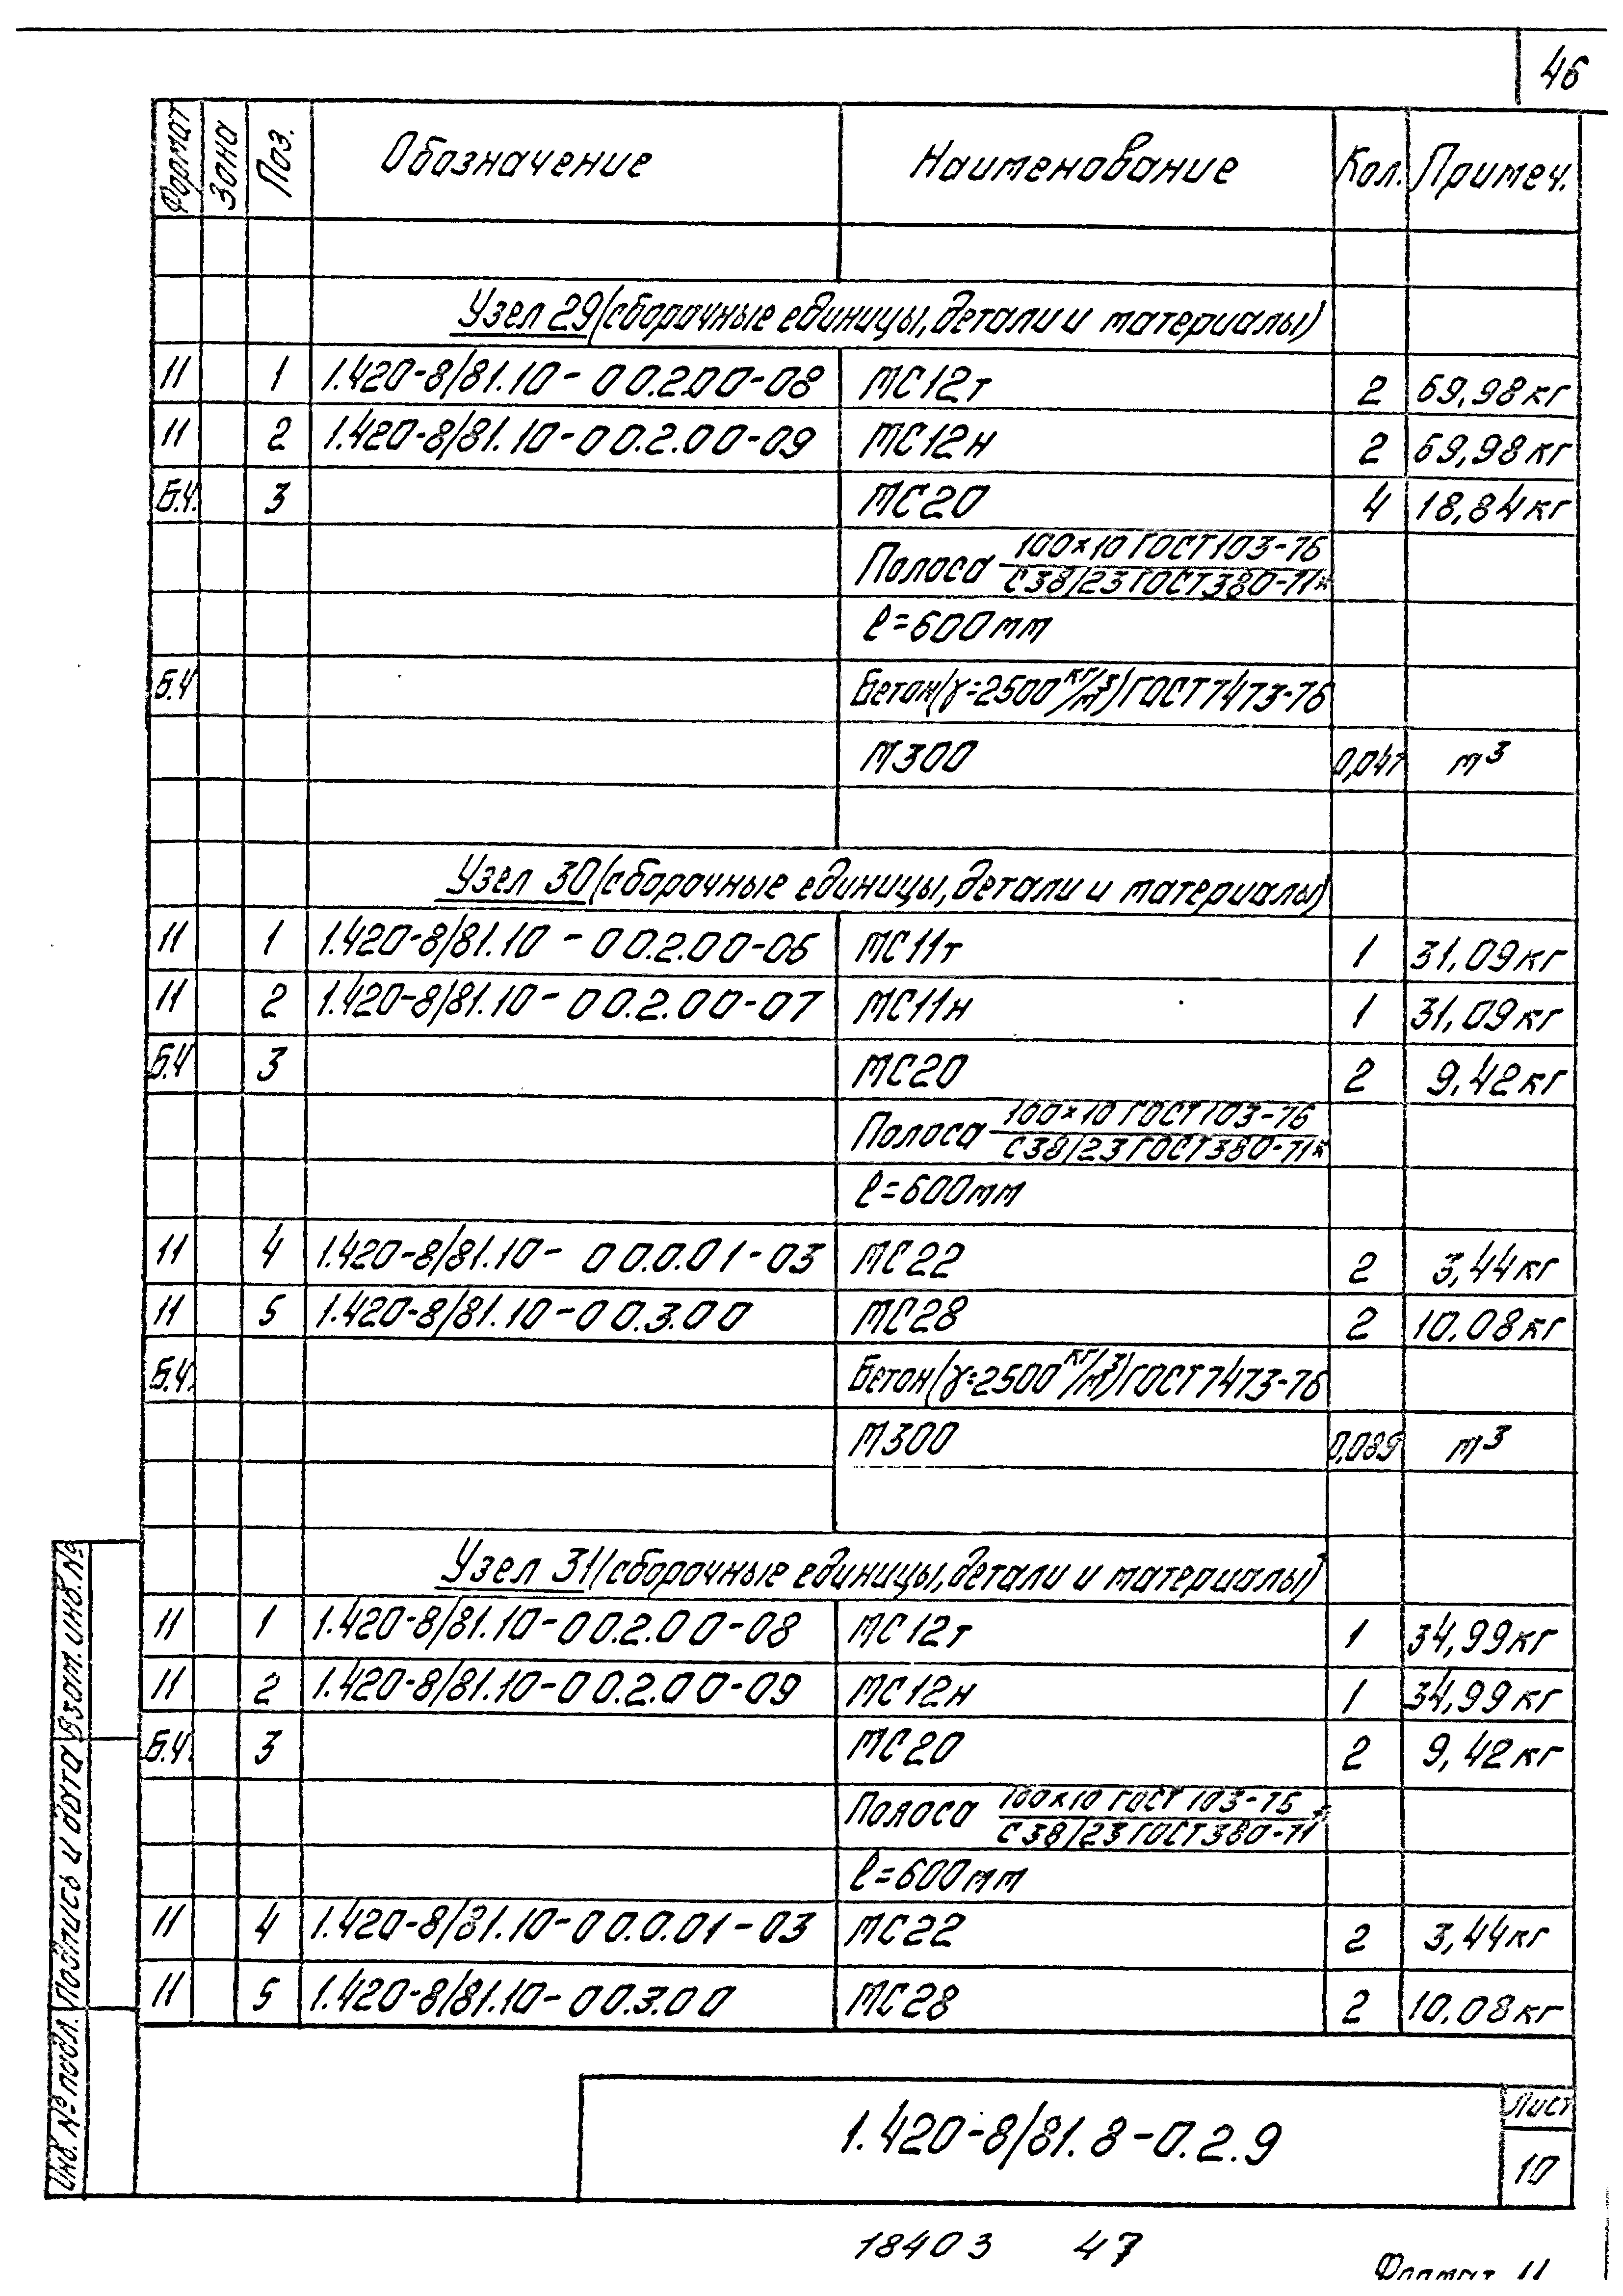 46
Формат Зона Поз. Обозначение Наименование Кол. Примеч.
Узел 29 (сборочные единицы, детали и материалы)
11 1 1.420-8/81.10-00.2.00-08 МС12т 2 69,98кг
11 2 1.420-8/81.10-00.2.00-09 МС12н 2 69,98кг
Б.Ч. 3 МС20 4 18,84кг
100×10 ГОСТ 103-76
Полоса
С38/23 ГОСТ 380-71*
ℓ=600мм
Б.Ч Бетон (γ=2500 кг/м³) ГОСТ 7473-76
М300 0,047 м³
Узел 30 (сборочные единицы, детали и материалы)
11 1 1.420-8/81.10-00.2.00-06 МС11т 1 31,09кг
11 2 1.420-8/81.10-00.2.00-07 МС11н 1 31,09кг
Б.Ч 3 МС20 2 9,42кг
100×10 ГОСТ 103-76
Полоса
С38/23 ГОСТ 380-71*
ℓ=600мм
11 4 1.420-8/81.10-00.0.01-03 МС22 2 3,44кг
11 5 1.420-8/81.10-00.3.00 МС28 2 10,08кг
Б.Ч. Бетон (γ=2500 кг/м³) ГОСТ 7473-76
М300 0,089 м³
Узел 31 (сборочные единицы, детали и материалы)
11 1 1.420-8/81.10-00.2.00-08 МС12т 1 34,99кг
11 2 1.420-8/81.10-00.2.00-09 МС12н 1 34,99кг
Б.Ч. 3 МС20 2 9,42кг
100×10 ГОСТ 103-76
Полоса
С38/23 ГОСТ 380-71*
ℓ=600мм
11 4 1.420-8/81.10-00.0.01-03 МС22 2 3,44кг
11 5 1.420-8/81.10-00.3.00 МС28 2 10,08кг
Инв. № подл. Подпись и дата Взам. инв. №
1.420-8/81.8-0.2.9
Лист
10
18403 47
Формат 11